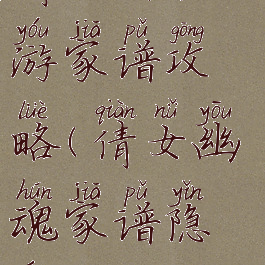 yóu jiā pǔ gōng
游家谱攻
lüè qiàn nǚ yōu
略(倩女幽
hún jiā pǔ yǐn
魂家谱隐